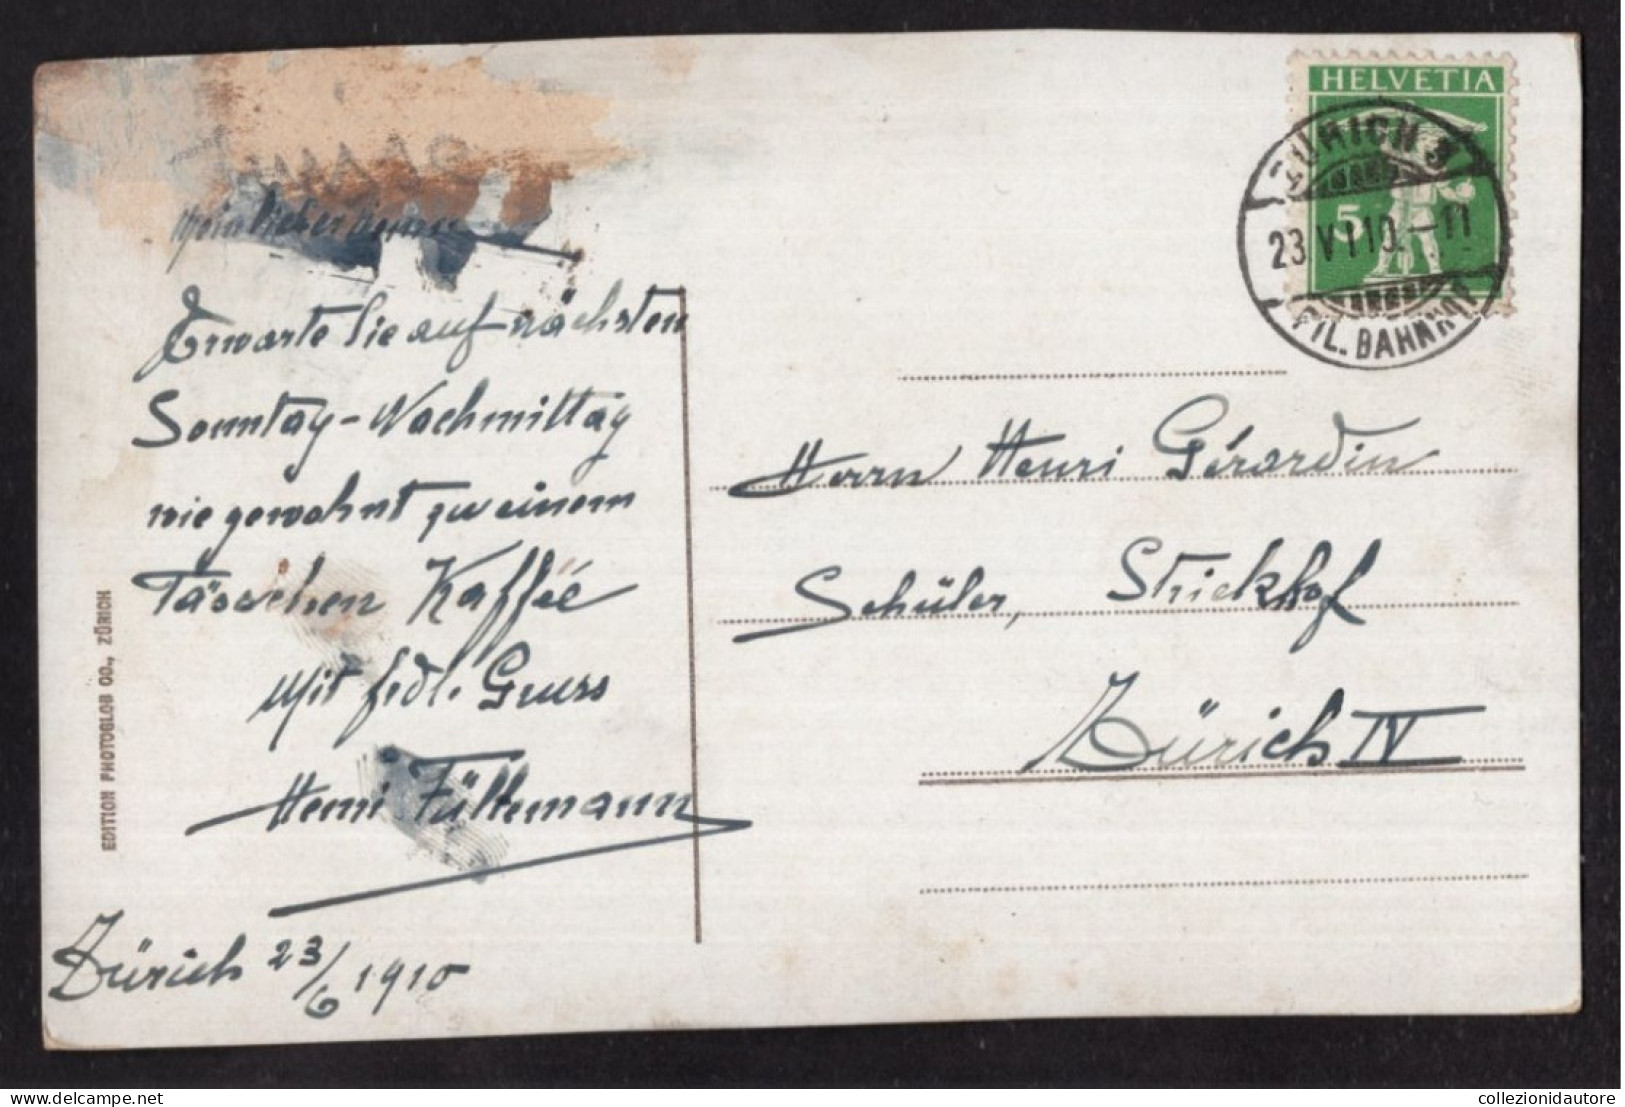 Mein lieber Henri
Erwarte Sie auf nächsten
Sonntag-Nachmittag
wie gewohnt zu einem
Tässchen Kaffee
Mit frdl. Gruss
Henri Füllemann
Zürich 23/6 1910
EDITION PHOTOGLOB CO., ZÜRICH
HELVETIA
5
ZÜRICH
23.VI.10.-11
FIL. BAHNHOF
Herrn Henri Gérardin
Schüler, Strickhof
Zürich IV
collezionidautore